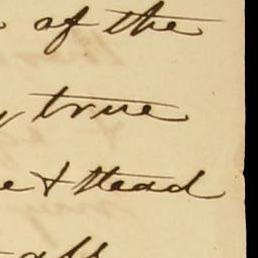 of the
true
& Stead